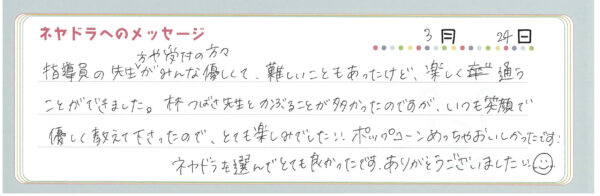 ネヤドラへのメッセージ
3月 24日
指導員の先生方や受付の方々がみんな優しくて、難しいこともあったけど、楽しく通う
ことができました。林つばさ先生とかぶることが多かったのですが、いつも笑顔で
優しく教えて下さったので、とても楽しみでした!! ポップコーンめっちゃおいしかったです!
ネヤドラを選んでとても良かったです。ありがとうございました!!